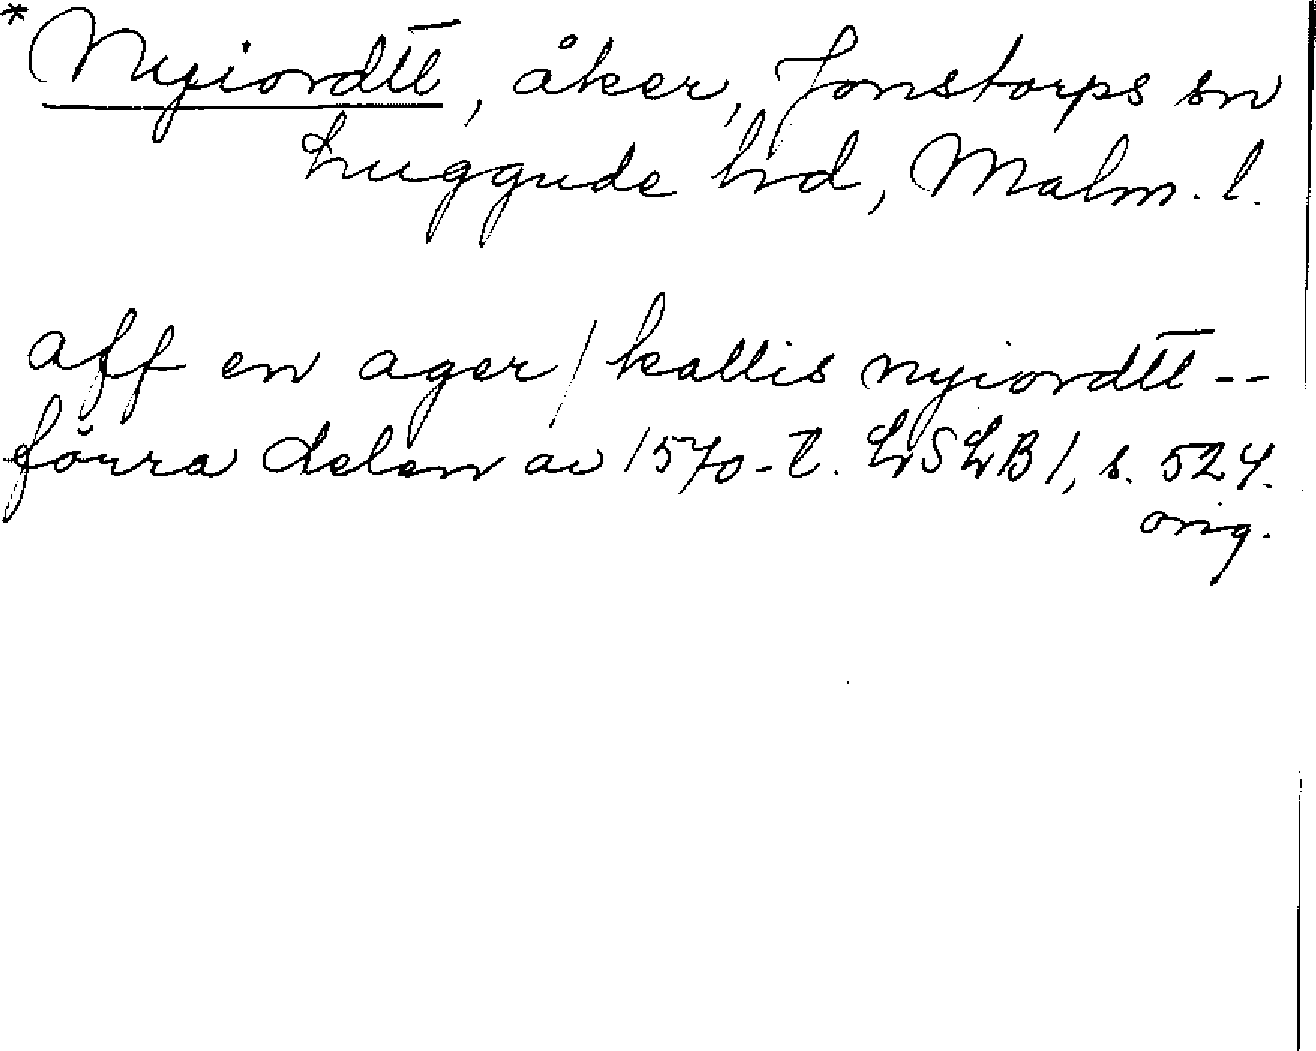 *Nyiordtt̅, åker, Jonstorps sn
Luggude hd, Malm. l.
aff en ager / kallis nyiordtt̅ --
förra delen av 1570-t. LSLB 1, s. 524.
orig.